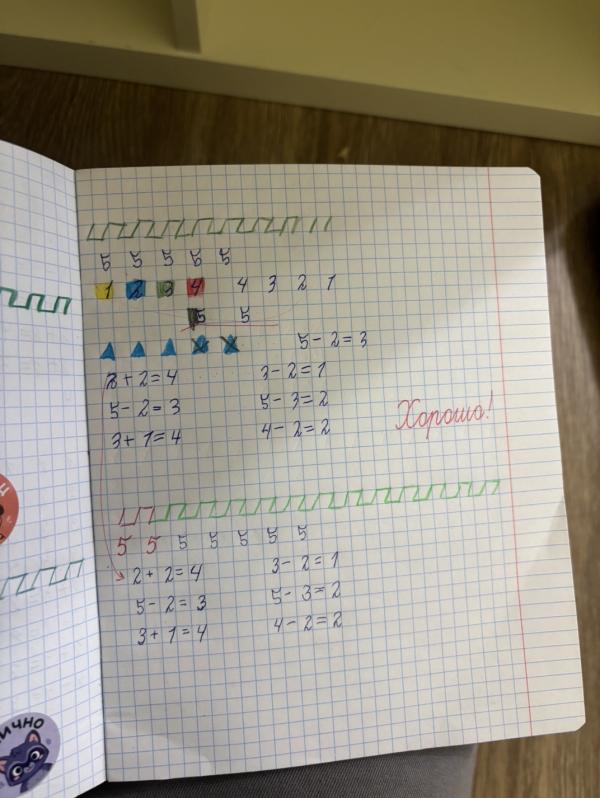 5 5 5 5 5
1 2 3 4 4 3 2 1
5 5
5 - 2 = 3
2 + 2 = 4 3 - 2 = 1
5 - 2 = 3 5 - 3 = 2
3 + 1 = 4 4 - 2 = 2
Хорошо!
5 5 5 5 5 5 5
2 + 2 = 4 3 - 2 = 1
5 - 2 = 3 5 - 3 = 2
3 + 1 = 4 4 - 2 = 2
ично